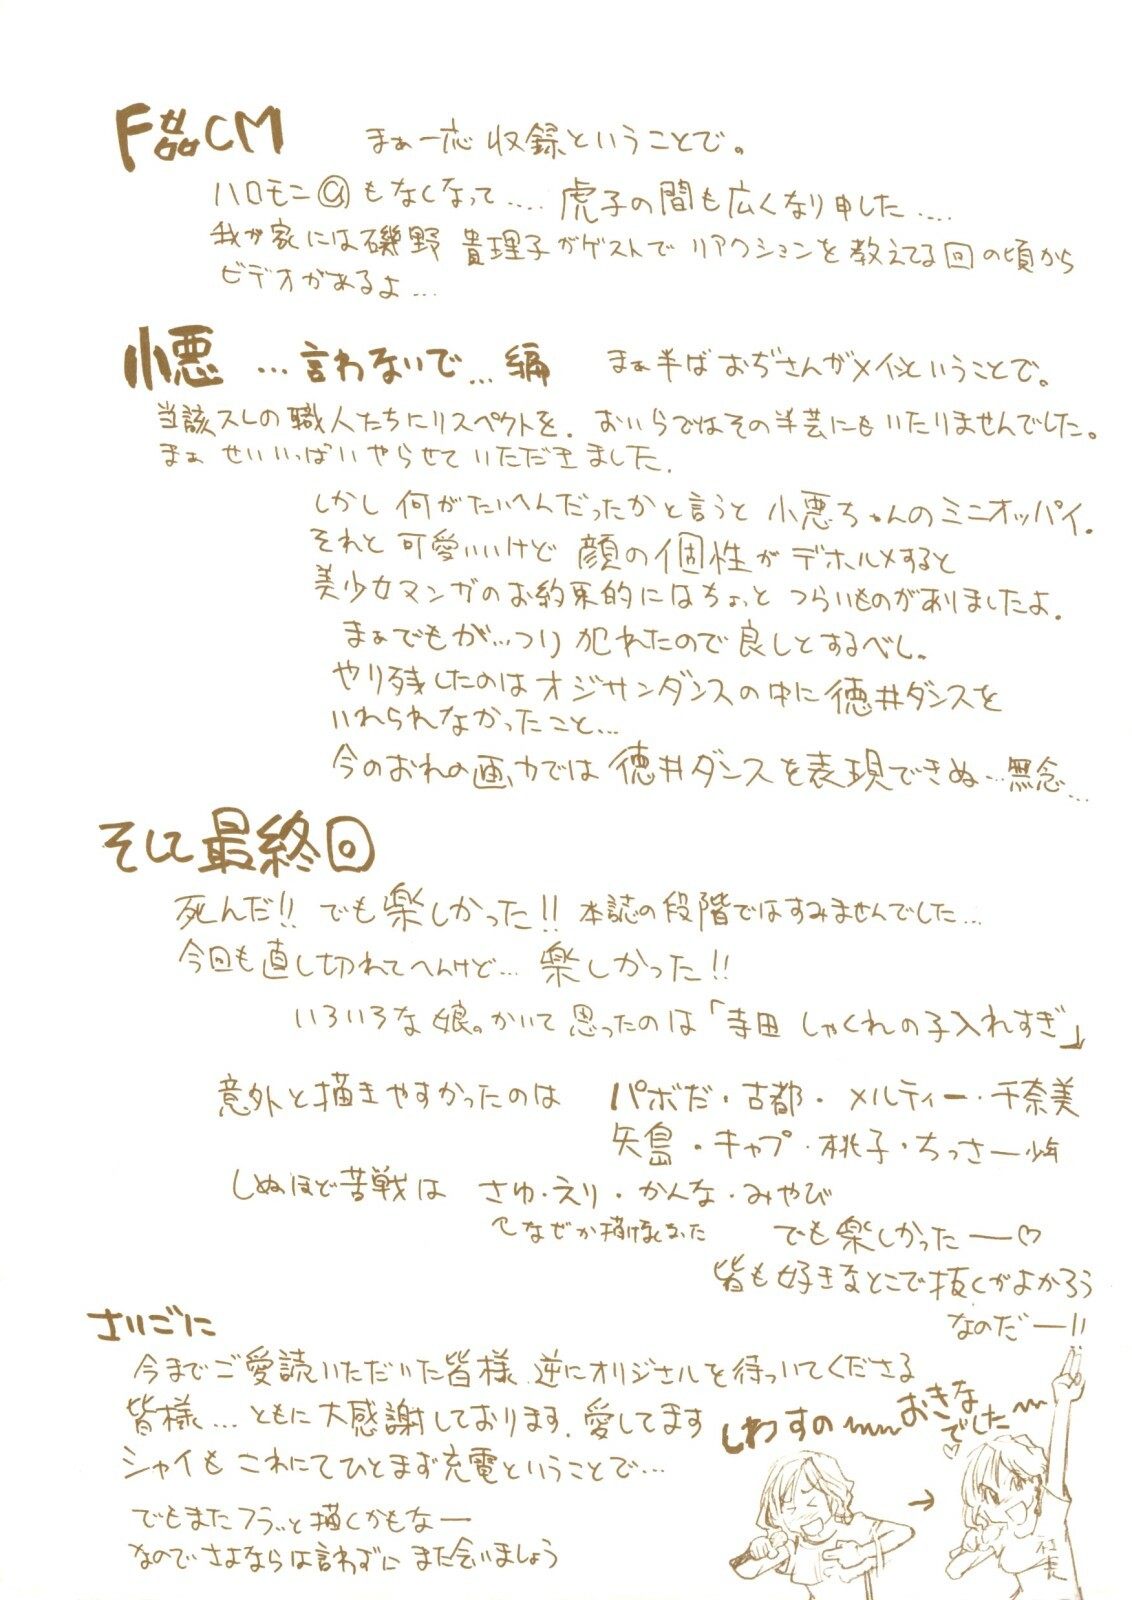 F磊CM まぁ一応 収録ということで。
ハロモニ@もなくなって…. 虎子の間も広くなり申した….
我が家には磯野 貴理子がゲストで リアクションを教えてる回の頃から
ビデオがあるよ…
小悪 …言わないで… 編 まぁ半ば おぢさんがメインということで。
当該スレの職人たちにリスペクトを. おいらではその半芸にもいたりませんでした。
まぁ せいいっぱいやらせていただきました.
しかし 何がたいへんだったかと言うと 小悪ちゃんのミニオッパイ.
それと 可愛いいけど 顔の個性が デホルメすると
美少女マンガのお約束的にはちょっと つらいものがありましたよ.
まぁでもが…つり 犯れたので良しとするべし.
やり残したのはオジサンダンスの中に徳井ダンスを
いれられなかったこと…
今のおれの画力では 徳井ダンスを表現できぬ…無念…
そして最終回
死んだ!! でも楽しかった!! 本誌の段階ではすみませんでした…
今回も直し切れてへんけど… 楽しかった!!
いろいろな 娘。かいて 思ったのは「寺田 しゃくれの子入れすぎ」
意外と描きやすかったのは パボだ・古都・メルティー・千奈美
矢島・キャプ・桃子・ちっさー少年
しぬほど苦戦は さゆ・えり・かんな・みやび
なぜか描けなかった でも楽しかったー♡
皆も好きなとこで抜くがよかろう
なのだー!!
さいごに
今までご愛読いただいた皆様 逆にオリジナルを待っいてくださる
皆様… ともに大感謝しております. 愛してます
シャイも これにてひとまず充電ということで…
でもまたフラッと描くかもなー
なのでさよならは言わずに また会いましょう
しわすの〜〜 おきな
でした〜
→
社長